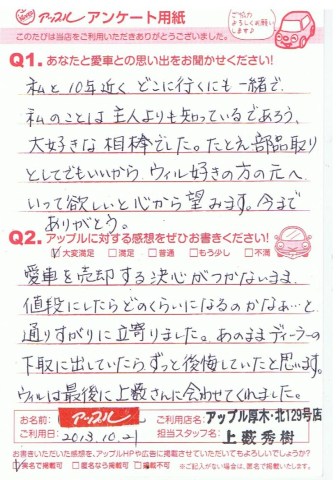 アップル アンケート用紙
ご協力
よろしくお願い
します♪
このたびは当店をご利用いただきありがとうございました。
Q1. あなたと愛車との思い出をお聞かせください!
私と10年近くどこに行くにも一緒で、
私のことは主人よりも知っているであろう、
大好きな相棒でした。たとえ部品取り
としてでもいいから、ウィル好きの方の元へ
いって欲しいと心から望みます。今まで
ありがとう。
Q2. アップルに対する感想をぜひお書きください!
☑大変満足 □満足 □普通 □もう少し □不満
愛車を売却する決心がつかないまま、
値段にしたらどのくらいになるのかなぁ…と
通りすがりに立寄りました。あのままディーラーの
下取に出していたらずっと後悔していたと思います。
ウィルは最後に上藪さんに会わせてくれました。
お名前: アップル ご利用店名: アップル厚木・北129号店
ご利用日: 2013.10.21 担当スタッフ名: 上藪秀樹
お書きいただいた感想を、アップルHPや広告に掲載させていただいてもよろしいでしょうか?
☑実名で掲載可 □匿名なら掲載可 □掲載不可 ※ご記入がない場合は、匿名で掲載いたします。